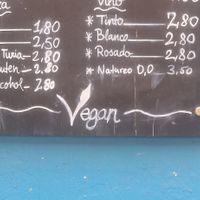 Vino
1,80
2,50
Turia 2,80
uten 2.80
ohol - 2,80
* Tinto 2,80
* Blanco 2,80
* Rosado 2,80
* Natureo 0,0 3,50
Vegan